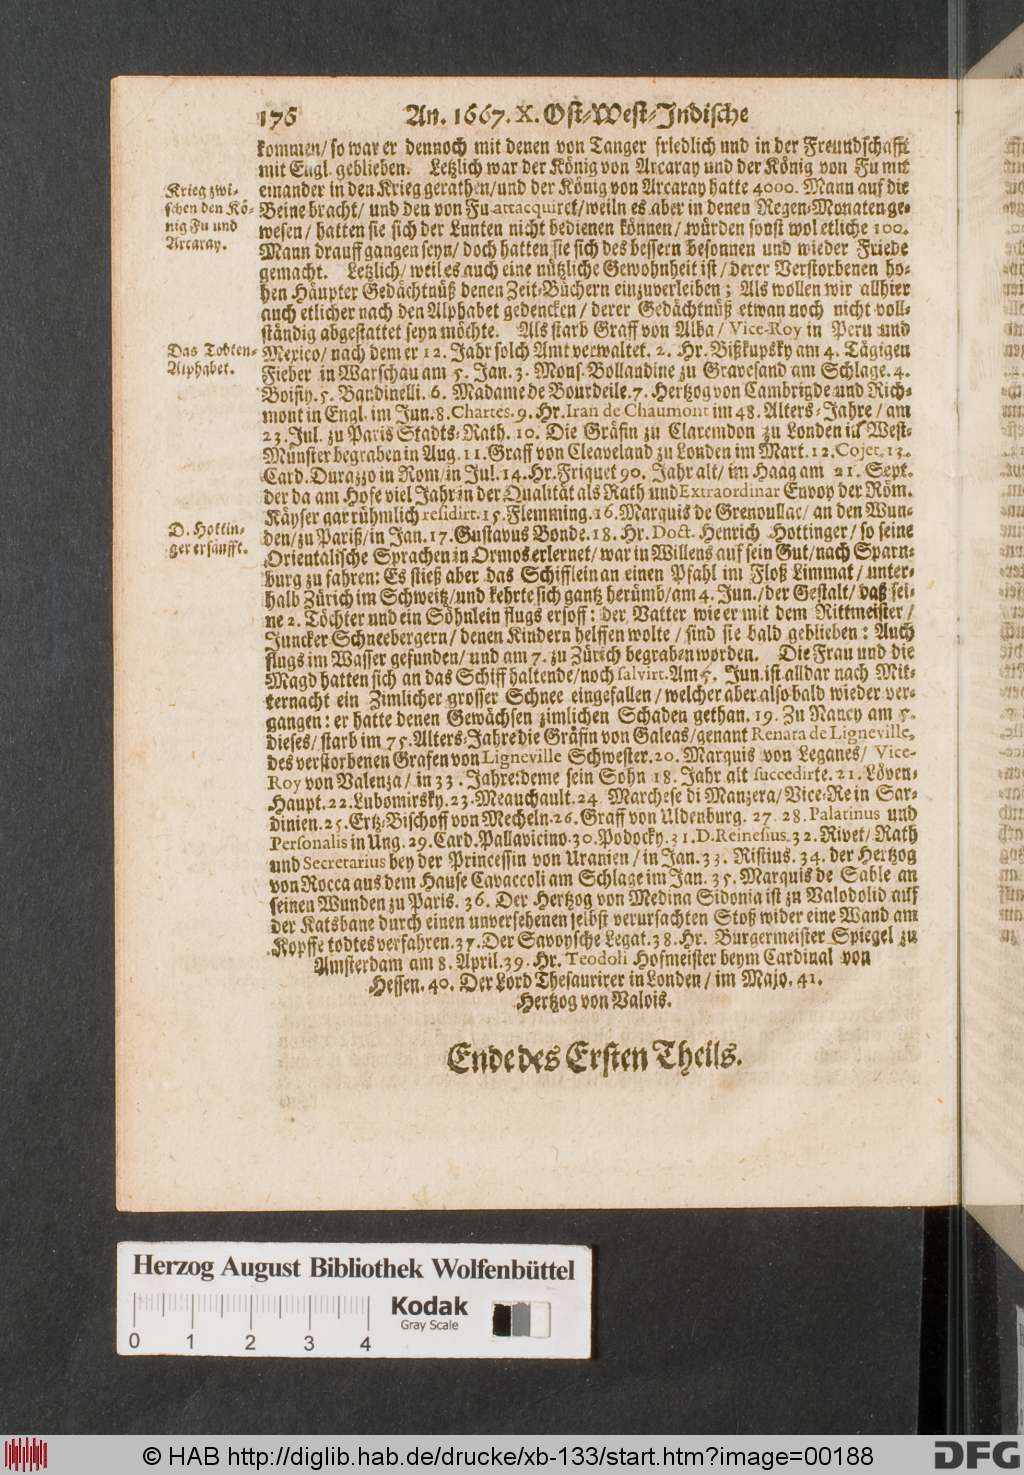 176 An. 1667. X. Ost-West-Indische
kommen/ so war er dennoch mit denen von Tanger friedlich und in der Freundschafft
mit Engl. geblieben. Letzlich war der König von Arcaray und der König von Fu mit
Krieg zwi-
schen den Kö-
nig Fu und
Arcaray.
einander in den Krieg gerathen/ und der König von Arcaray hatte 4000. Mann auf die
Beine bracht/ und den von Fu attacquiret/ weiln es aber in denen Regen-Monaten ge-
wesen/ hatten sie sich der Lunten nicht bedienen können/ würden sonst wol etliche 100.
Mann drauff gangen seyn/ doch hatten sie sich des bessern besonnen und wieder Friede
gemacht. Letzlich/ weil es auch eine nützliche Gewohnheit ist/ derer Verstorbenen ho-
hen Häupter Gedächtnüß denen Zeit-Büchern einzuverleiben; Als wollen wir allhier
auch etlicher nach den Alphabet gedencken/ derer Gedächtnüß etwan noch nicht voll-
ständig abgestattet seyn möchte. Als starb Graff von Alba/ Vice-Roy in Peru und
Das Todten-
Alphabet.
Mexico/ nach dem er 12. Jahr solch Amt verwaltet. 2. Hr. Bißkupsky am 4. Tägigen
Fieber in Warschau am 5. Jan. 3. Mons. Bollandine zu Gravesand am Schlage. 4.
Boisiy. 5. Bandinelli. 6. Madame de Bourdeile. 7. Hertzog von Cambrigde und Rich-
mont in Engl. im Jun. 8. Chartes. 9. Hr. Iran de Chaumont im 48. Alters-Jahre/ am
23. Jul. zu Paris Stadts-Rath. 10. Die Gräfin zu Claremdon zu Londen in West-
Münster begraben in Aug. 11. Graff von Cleaveland zu Londen im Mart. 12. Cojet. 13.
Card. Durazzo in Rom/ in Jul. 14. Hr. Friquet 90. Jahr alt/ im Haag am 21. Sept.
der da am Hofe viel Jahr in der Qualität als Rath und Extraordinar Envoy der Röm.
Käyser gar rühmlich residirt. 15. Flemming. 16. Marquis de Grenoullac/ an den Wun-
D. Hottin-
ger ersäufft.
den/ zu Pariß/ in Jan. 17. Gustavus Bonde. 18. Hr. Doct. Henrich Hottinger/ so seine
Orientalische Sprachen in Ormos erlernet/ war in Willens auf sein Gut/ nach Sparn-
burg zu fahren: Es stieß aber das Schifflein an einen Pfahl im Floß Limmat/ unter-
halb Zürich im Schweitz/ und kehrte sich gantz herümb/ am 4. Jun./ der Gestalt/ daß sei-
ne 2. Töchter und ein Söhnlein flugs ersoff: der Vatter wie er mit dem Rittmeister/
Juncker Schneebergern/ denen Kindern helffen wolte/ sind sie bald geblieben: Auch
flugs im Wasser gefunden/ und am 7. zu Zürich begraben worden. Die Frau und die
Magd hatten sich an das Schiff haltende/ noch salvirt. Am 5. Jun. ist alldar nach Mit-
ternacht ein Zimlicher grosser Schnee eingefallen/ welcher aber also bald wieder ver-
gangen: er hatte denen Gewächsen zimlichen Schaden gethan. 19. Zu Nancy am 5.
dieses/ starb im 75. Alters-Jahre die Gräfin von Galeas/ genant Renara de Ligneville,
des verstorbenen Grafen von Ligneville Schwester. 20. Marquis von Leganes/ Vice-
Roy von Valenza/ in 33. Jahre: deme sein Sohn 18. Jahr alt succedirte. 21. Löven-
Haupt. 22. Lubomirsky. 23. Meauchault. 24. Marchese di Manzera/ Vice-Re in Sar-
dinien. 25. Ertz-Bischoff von Mecheln. 26. Graff von Uldenburg. 27. 28. Palatinus und
Personalis in Ung. 29. Card. Pallavicino. 30. Podocky. 31. D. Reinesius. 32. Rivet/ Rath
und Secretarius bey der Princessin von Uranien/ in Jan. 33. Ristius. 34. der Hertzog
von Rocca aus dem Hause Cavaccoli am Schlage im Jan. 35. Marquis de Sable an
seinen Wunden zu Paris. 36. Der Hertzog von Medina Sidonia ist zu Valodolid auff
der Katsbane durch einen unversehenen selbst verursachten Stoß wider eine Wand am
Kopffe todtes verfahren. 37. Der Savoysche Legat. 38. Hr. Burgermeister Spiegel zu
Amsterdam am 8. April. 39. Hr. Teodoli Hofmeister beym Cardinal von
Hessen. 40. Der Lord Thesaurirer in Londen/ im Majo. 41.
Hertzog von Valois.
Ende des Ersten Theils.
Herzog August Bibliothek Wolfenbüttel
0 1 2 3 4
Kodak
Gray Scale
© HAB http://diglib.hab.de/drucke/xb-133/start.htm?image=00188
DFG